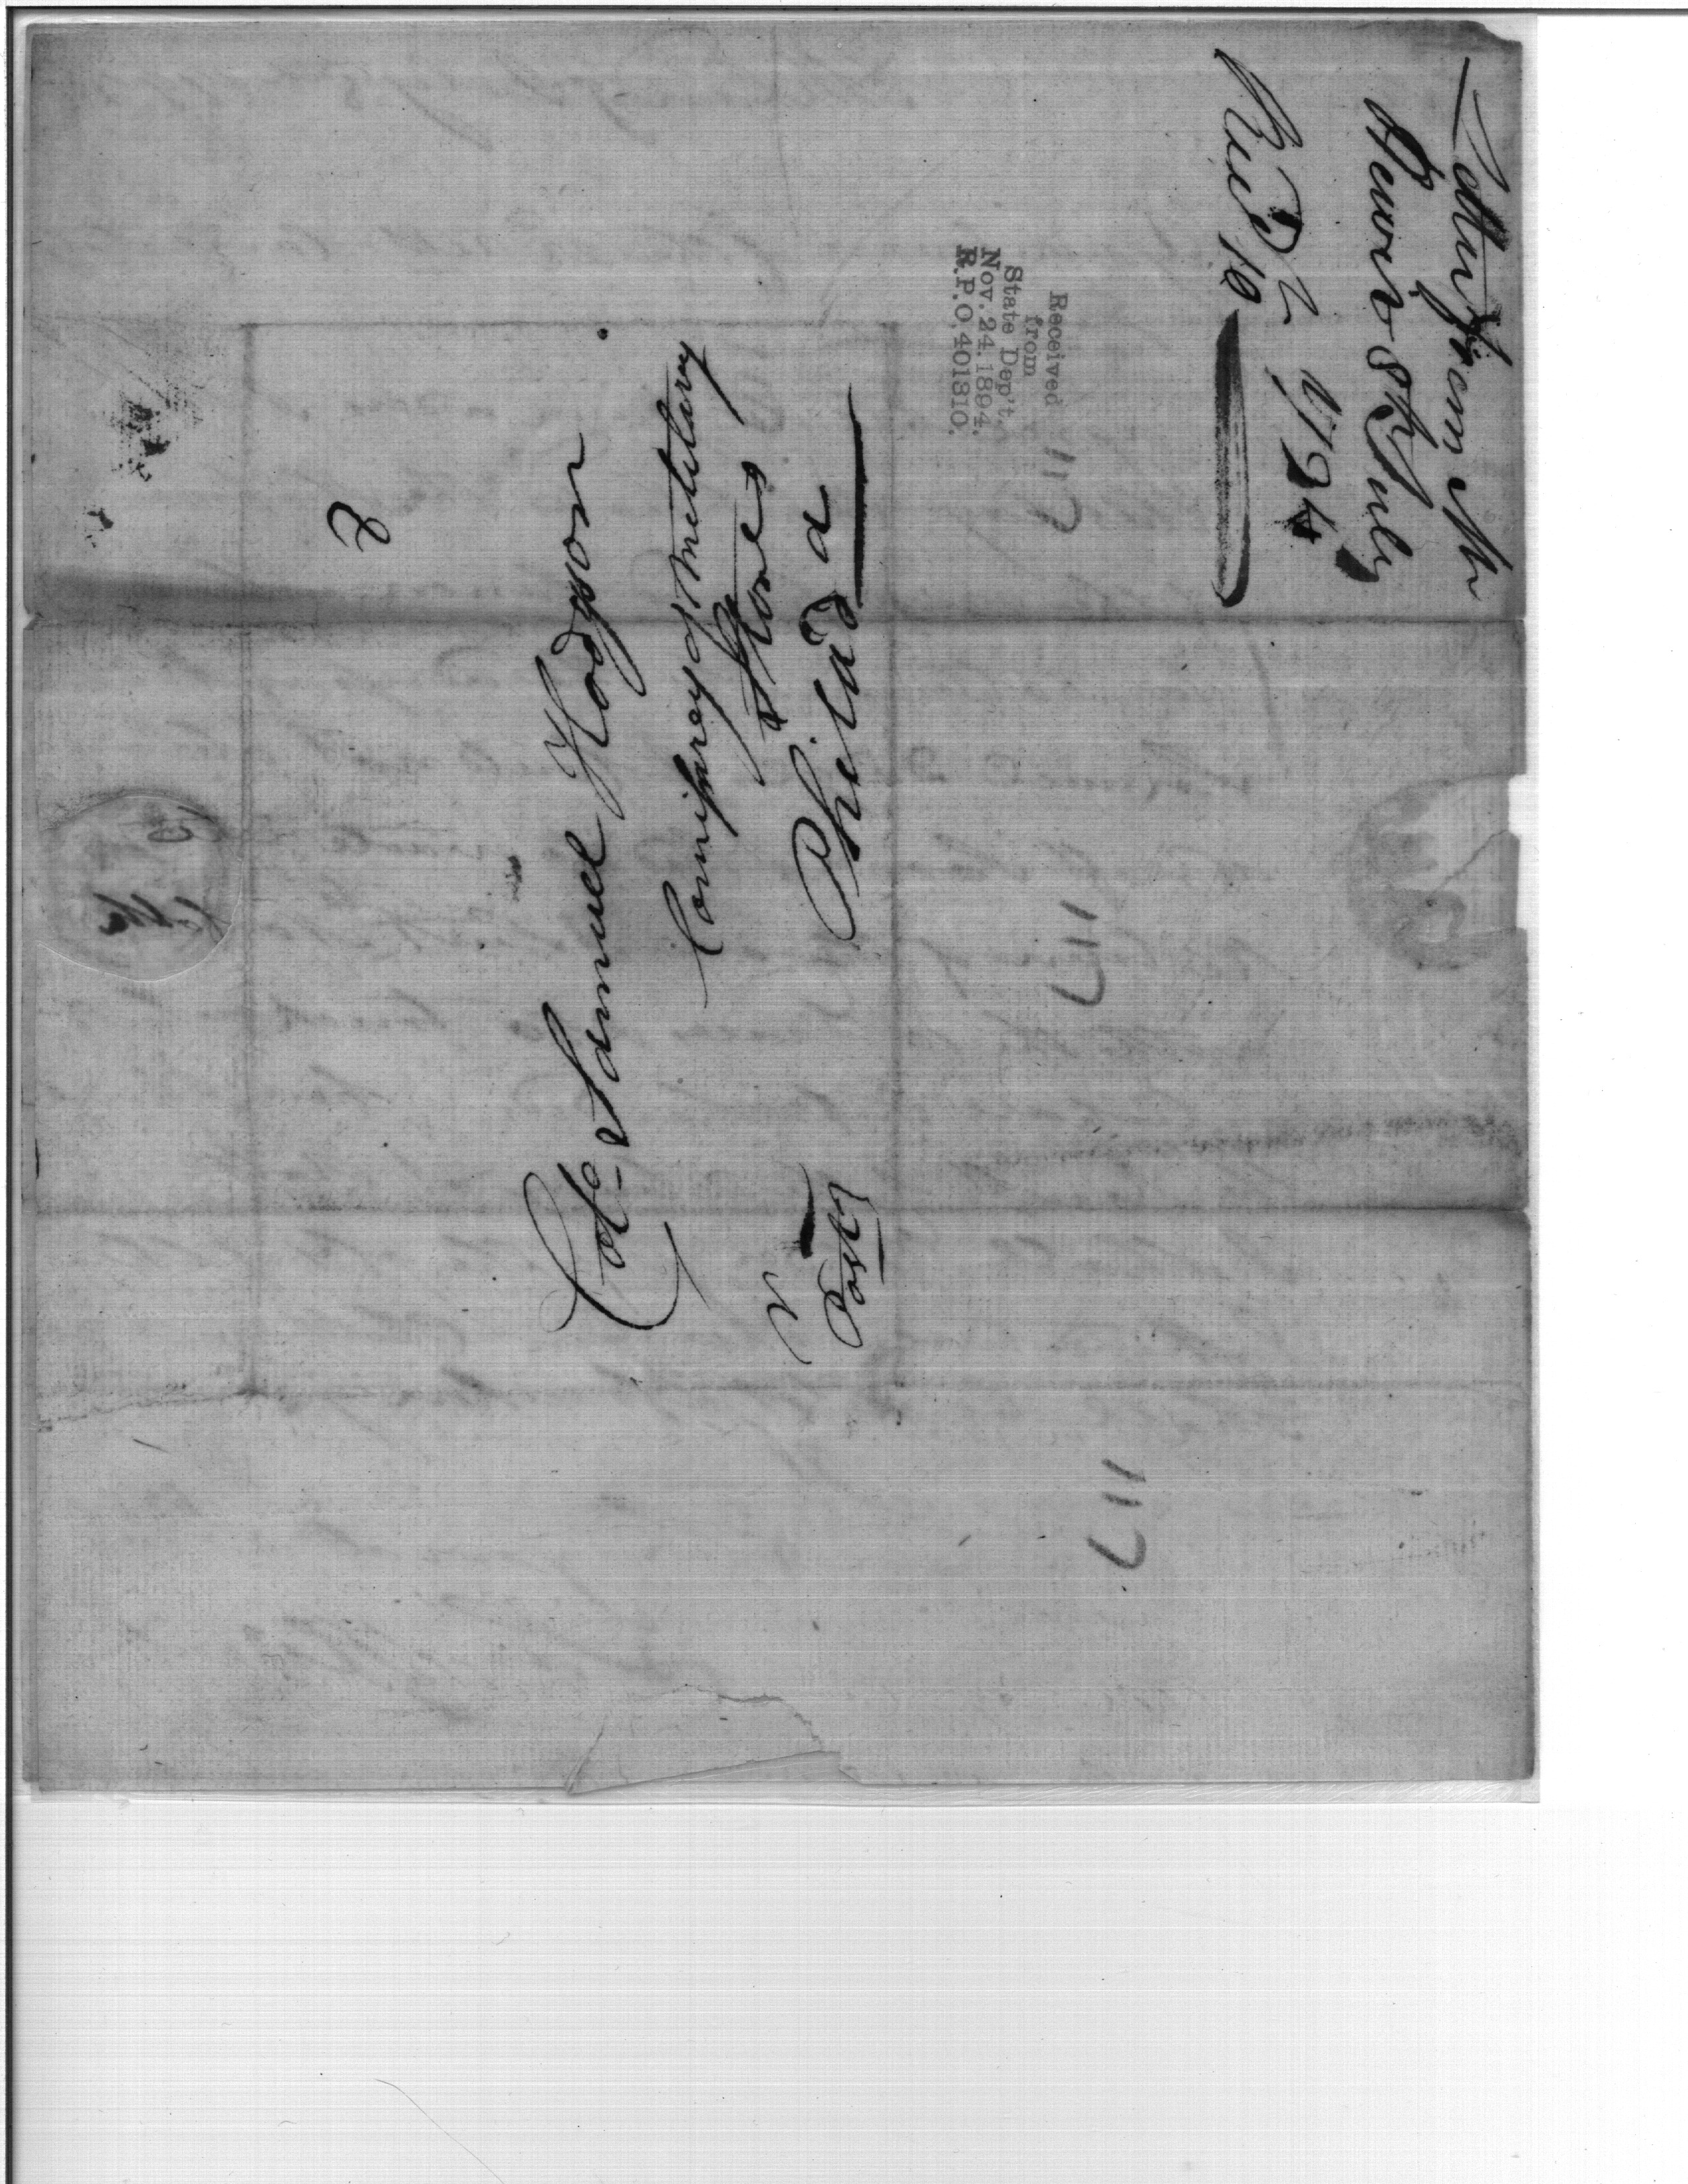 Letter from Mr
Henry 8th July
1794
Recd 10
Received
from
State Dep't.
Nov. 24. 1894.
R.P.O. 401310.
117
Colo Samuel Hodgson
Comissary of Military
Stores
Philad a
Post
2
117
117